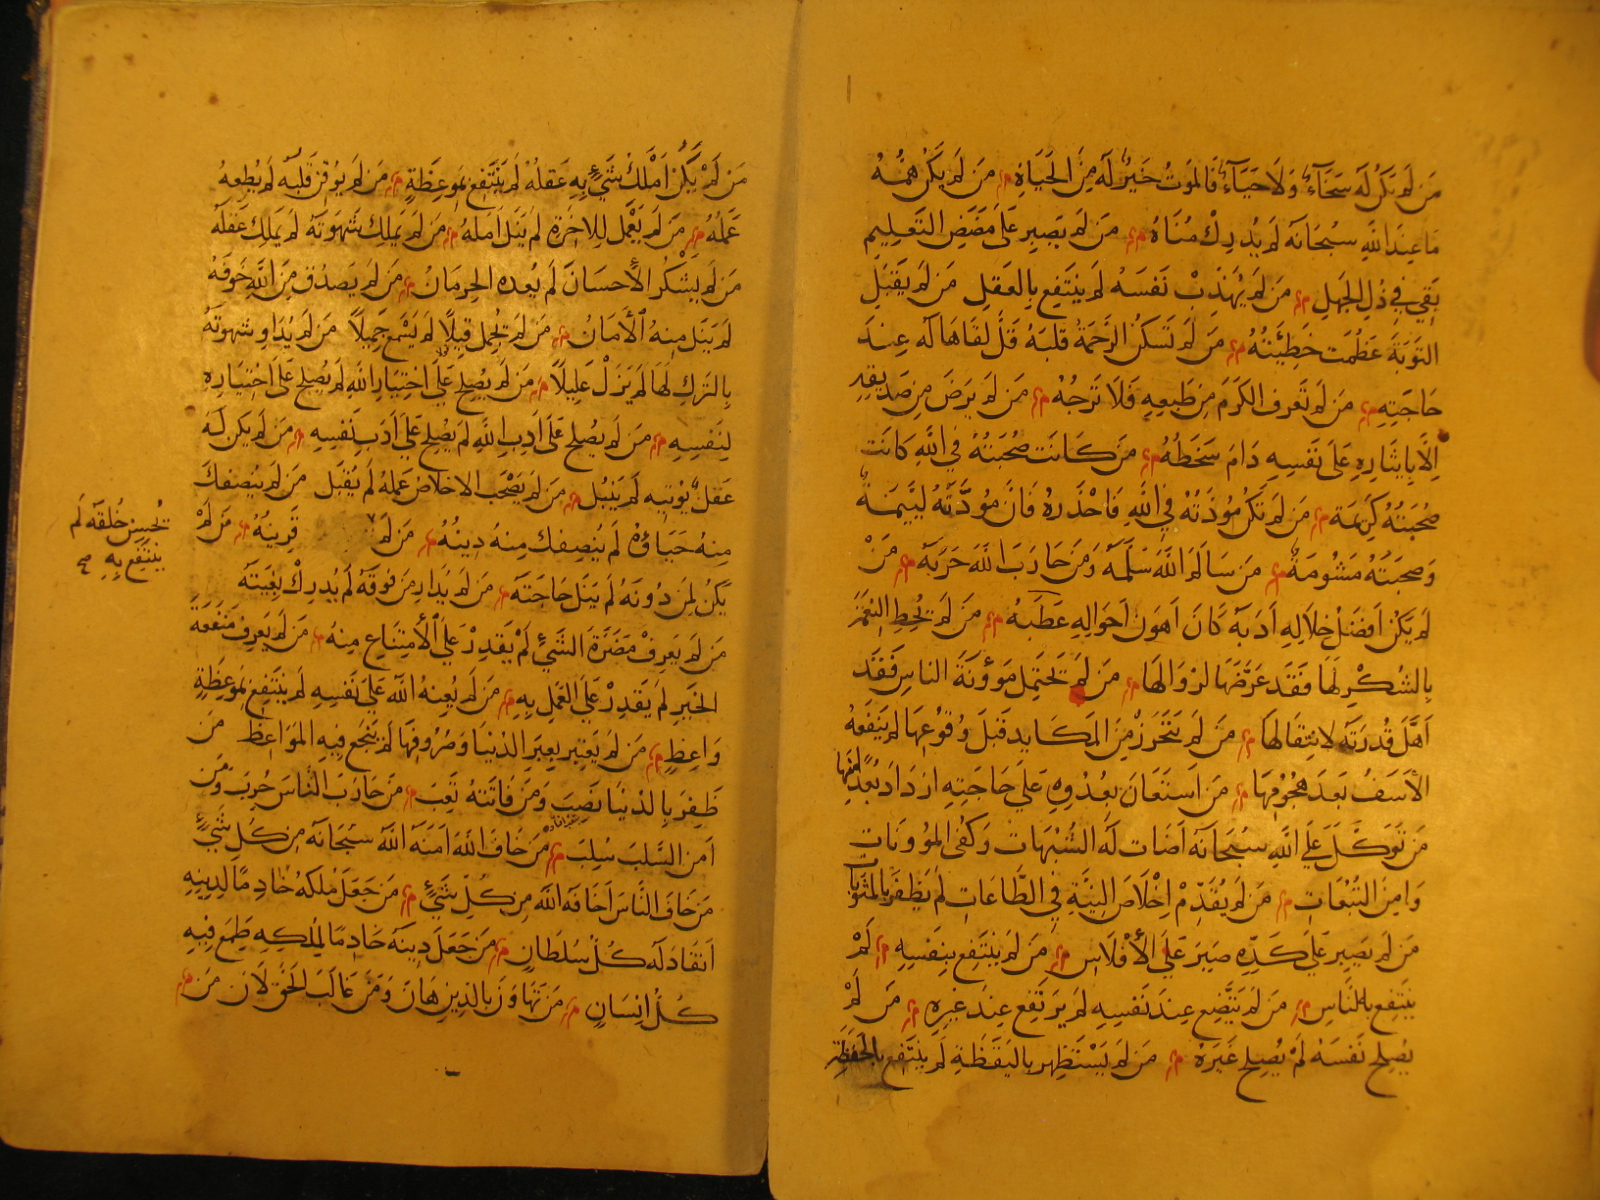 مَن لَم تَكُن لَه سَخَآءٌ وَلَا حَيَآءٌ فَالمَوتُ خَيرٌ لَه مِنَ الحَيَاةِ مَن لَم يَكُن هَمُّهُ
مَا عِندَ اللَّهِ سُبحَانَهُ لَم يُدرِك مُنَاهُ مَن لَم يَصبِر عَلَى مَضَضِ التَّعلِيمِ
بَقِيَ فِي ذُلِّ الجَهلِ مَن لَم يُهَذِّب نَفسَهُ لَم يَنتَفِع بِالعَقلِ مَن لَم يَقبَلِ
التَّوبَةَ عَظُمَت خَطِيئَتُهُ مَن لَم تَسكُنِ الرَّحمَةُ قَلبَهُ قَلَّ لِقَاهَا لَه عِندَ
حَاجَتِهِ مَن لَم تَعرِفِ الكَرَمَ مِن طَبعِهِ فَلَا تَرجُهُ مَن لَم يَرضَ مِن صَدِيقِهِ
اِلَّا بِاِيثَارِهِ عَلَى نَفسِهِ دَامَ سَخَطُهُ مَن كَانَت صُحبَتُهُ فِي اللَّهِ كَانَت
صُحبَتُهُ كَرِيمَة مَن لَم تَكُن مَوَدَّتُهُ فِي اللَّهِ فَاحذَرهُ فَاِنَّ مَوَدَّتَهُ لَئِيمَةٌ
وَصُحبَتَهُ مَشُومَةٌ مَن سَالَمَ اللَّهَ سَلَّمَهُ وَمَن حَارَبَ اللَّهَ حَرَبَهُ مَن
لَم يَكُن اَفضَلُ خِلَالِهِ اَدَبَهُ كَانَ اَهوَن اَحوَالِهِ عَطَبَهُ مَن لَم يُحِطِ النِّعَمَ
بِالشُّكرِ لَهَا فَقَد عَرَّضَهَا لِزَوَالِهَا مَن لَم يَحتَمِل مَؤونَةَ النَّاسِ فَقَد
اَهَّلَ قُدرَتَهُ لِانتِقَالِهَا مَن لَم يَتَحَرَّز مِنَ المَكَايِدِ قَبلَ وُقُوعِهَا لَم يَنفَعهُ
الأَسَفُ بَعدَ هُجُومِهَا مَن اَستَعَانَ بِعَدُوِّهِ عَلَى حَاجَتِهِ ازدَادَ بُعدًا مِنهَا
مَن تَوَكَّلَ عَلَى اللَّهِ سُبحَانَهُ اَضَاءَت لَهُ الشُّبُهَات وَكُفِيَ المَؤونَات
وَاَمِنَ التَّبِعَات مَن لَم يُقَدِّم اِخلَاصَ النِّيَّةِ فِي الطَّاعَاتِ لَم يَظفَر بِالمَثُوبَاتِ
مَن لَم يَصبِر عَلَى كَدِّهِ صَبَرَ عَلَى الأِفلَاسِ مَن لَم يَنتَفِع بِنَفسِهِ لَم
يَنتَفِع بِالنَّاسِ مَن لَم يَتَّضِع عِندَ نَفسِهِ لَم يَرتَفِع عِندَ غَيرِهِ مَن لَم
يُصلِح نَفسَهُ لَم يُصلِح غَيرَهُ مَن لَم يَستَظهِر بِاليَقَظَةِ لَم يَنتَفِع بِالحَفَظَةِ
مَن لَم يَكُن اَملَكُ شَيءٍ بِهِ عَقلُهُ لَم يَنتَفِع بِمَوعِظَةٍ مَن لَم يُوقِن قَلبُهُ لَم يُطِعهُ
عَمَلُهُ مَن لَم يَعمَل لِلاخِرَةِ لَم يَنَل اَمَلَهُ مَن لَم يَملِك شَهوَتَهُ لَم يَملِك عَقلَهُ
مَن لَم يَشكُرِ الأِحسَانَ لَم يَعدُهُ الحِرمَانُ مَن لَم يَصدُق مِنَ اللَّهِ خَوفُهُ
لَم يَنَل مِنهُ الأَمَانُ مَن لَم يُجمِل قِيلًا لَم يَسمَع جَمِيلًا مَن لَم يُدَاوِ شَهوَتَهُ
بِالتَّركِ لَهَا لَم يَزَل عَلِيلًا مَن لَم يَصلُح عَلَى اختِيَارِ اللَّهِ لَم يَصلُح عَلَى اختِيَارِهِ
لِنَفسِهِ مَن لَم يَصلُح عَلَى اَدَبِ اللَّهِ لَم يَصلُح عَلَى اَدَبِ نَفسِهِ مَن لَم يَكُن لَهُ
عَقلٌ يُؤتِيهِ لَم يَنبُل مَن لَم يَصحَبِ الاخلَاصُ عَمَلَهُ لَم يُقبَل مَن لَم يُنصِفكَ
مِنهُ حَيَاؤُهُ لَم يُنصِفكَ مِنهُ دِينُهُ مَن لَم قَرِينُهُ مَن لَم
يُحسِن خُلقَهُ لَم
يَنتَفِع بِهِ صح
يَكُن لِمَن دُونَهُ لَم يَنَل حَاجَتَهُ مَن لَم يُدَارِ مَن فَوقَهُ لَم يُدرِك بُغيَتَهُ
مَن لَم يَعرِف مَضَرَّةَ الشَّيءِ لَم يَقدِر عَلَى الأِمتِنَاعِ مِنهُ مَن لَم يَعرِف مَنفَعَةَ
الخَيرِ لَم يَقدِر عَلَى العَمَلِ بِهِ مَن لَم يُعِنهُ اللَّهُ عَلَى نَفسِهِ لَم يَنتَفِع بِمَوعِظَةِ
وَاعِظٍ مَن لَم يَعتَبِر بِعِبَرِ الدُّنيَا وَصُرُوفِهَا لَم تَنجَع فِيهِ المَوَاعِظ مَن
ظَفِرَ بِالدُّنيَا نَصِبَ وَمَن فَاتَتهُ تَعِبَ مَن حَارَبَ النَّاسَ حُرِبَ وَمَن
اَمِنَ السَّلَبَ سُلِبَ مَن خَافَ اللَّهَ اَمَنَهُ اللَّهُ سُبحَانَهُ مِن كُلِّ شَيءٍ
مَن خَافَ النَّاسَ اَخَافَهُ اللَّهُ مِن كُلِّ شَيءٍ مَن جَعَلَ مُلكَهُ خَادِمًا لِدِينِهِ
اَنقَادَ لَهُ كُلُّ سُلطَانٍ مَن جَعَلَ دِينَهُ خَادِمًا لِمُلكِهِ طَمِعَ فِيهِ
كُلُّ اِنسَانٍ مَن تَهَاوَنَ بِالدِّينِ هَانَ وَمَن غَالَبَ الحَقَّ لَانَ مَن